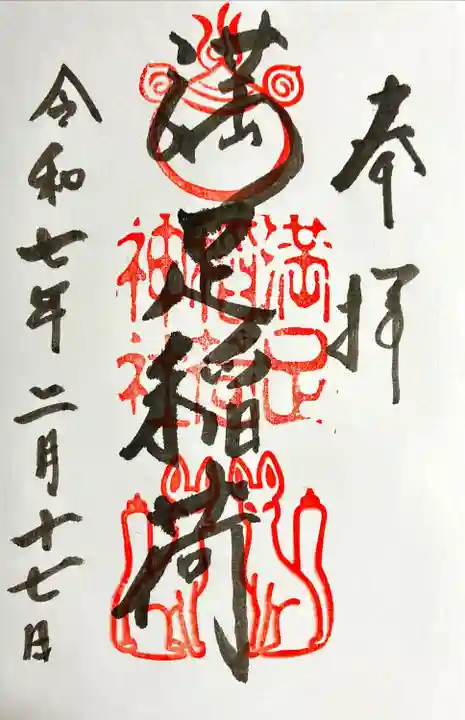 奉拝
満足稲荷
満足
稲荷
神社
令和七年 二月十七日